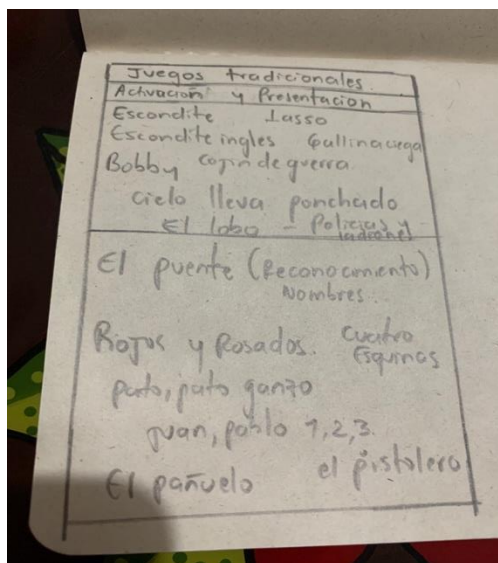 Juegos tradicionales
Activación y Presentacion
Escondite Lasso
Escondite ingles Gallina ciega
Bobby cojin de guerra
cielo lleva ponchado
El lobo - Policias y
ladrones
El puente (Reconocimiento)
Nombres
Rojos y Rosados. Cuatro
Esquinas
pato, pato ganzo
Juan, pablo 1,2,3.
El pañuelo el pistolero